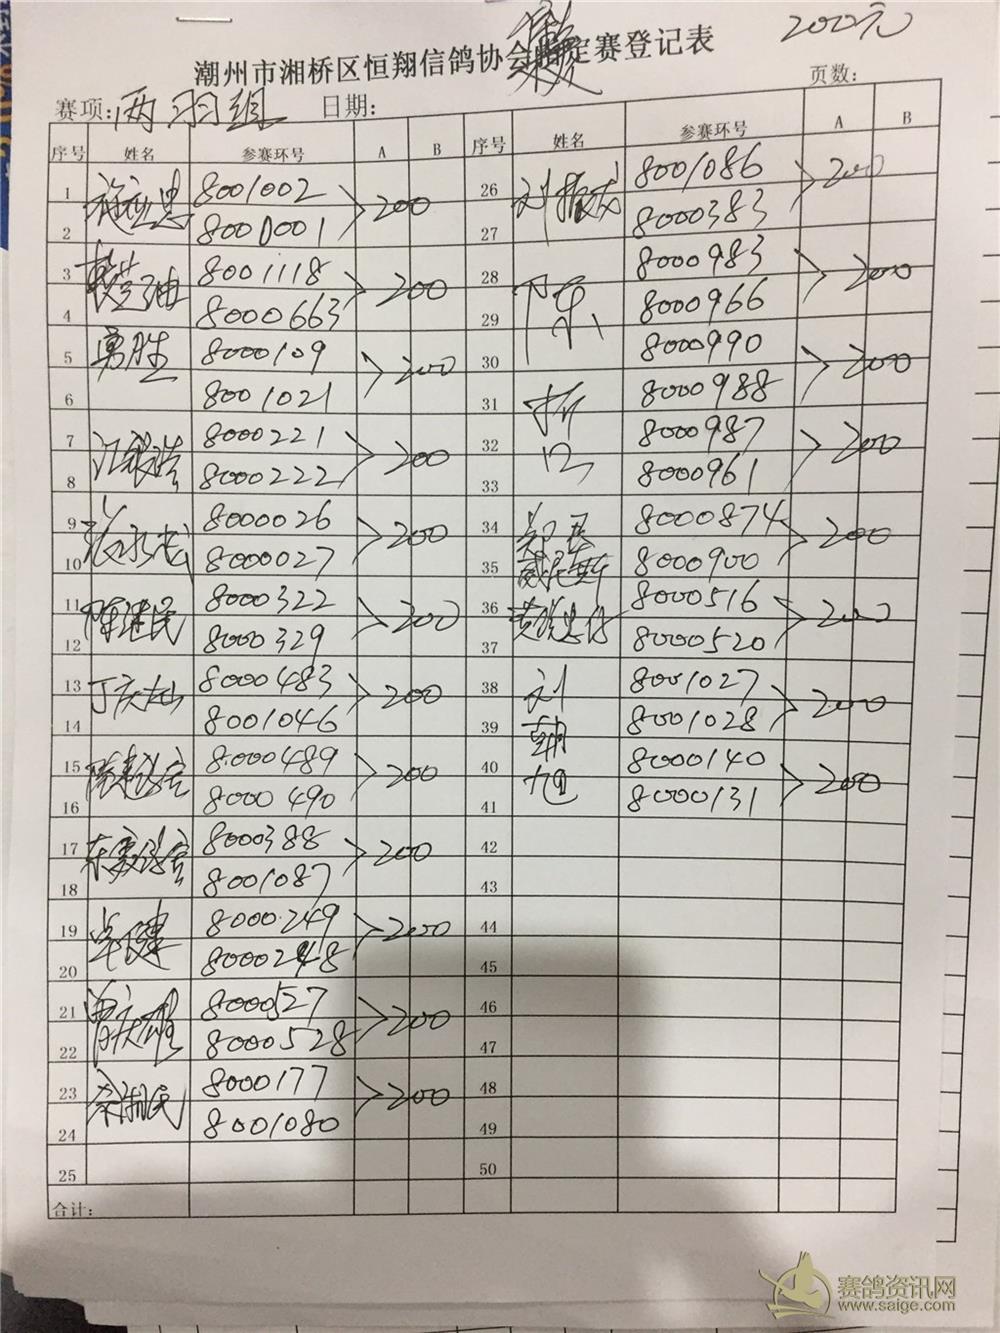 200元
潮州市湘桥区恒翔信鸽协会指定赛登记表
赛项:两羽组 日期: 页数:
序号 姓名 参赛环号 A B 序号 姓名 参赛环号 A B
1 8001002 200 26 8001086 200
2 8000001 27 8000383
3 8001118 200 28 8000983 200
4 8000663 29 8000966
5 勇胜 8000109 200 30 8000990 200
6 8001021 31 8000988
7 8000221 200 32 8000987 200
8 8000222 33 8000961
9 8000026 200 34 8000874 200
10 8000027 35 威尼斯 8000900
11 陈继民 8000322 200 36 8000516 200
12 8000329 37 8000520
13 丁庆灿 8000483 200 38 刘 8001027 200
14 8001046 39 朝 8001028
15 8000489 200 40 旭 8000140 200
16 8000490 41 8000131
17 8000388 200 42
18 8001087 43
19 8000249 200 44
20 8000248 45
21 曾庆雄 8000527 200 46
22 8000528 47
23 8000177 200 48
24 8001080 49
25 50
合计:
赛鸽资讯网
www.saige.com